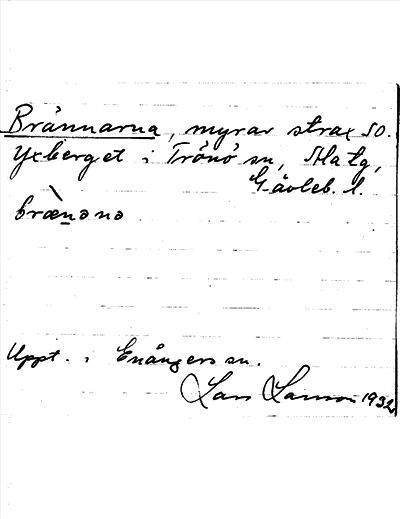 Brännarna, myrar strax SO.
Yxberget i Trönö sn, Ala tg,
Gävleb. l.
brænǝnǝ
Uppt. i Enångers sn.
Lars Larsson 1932